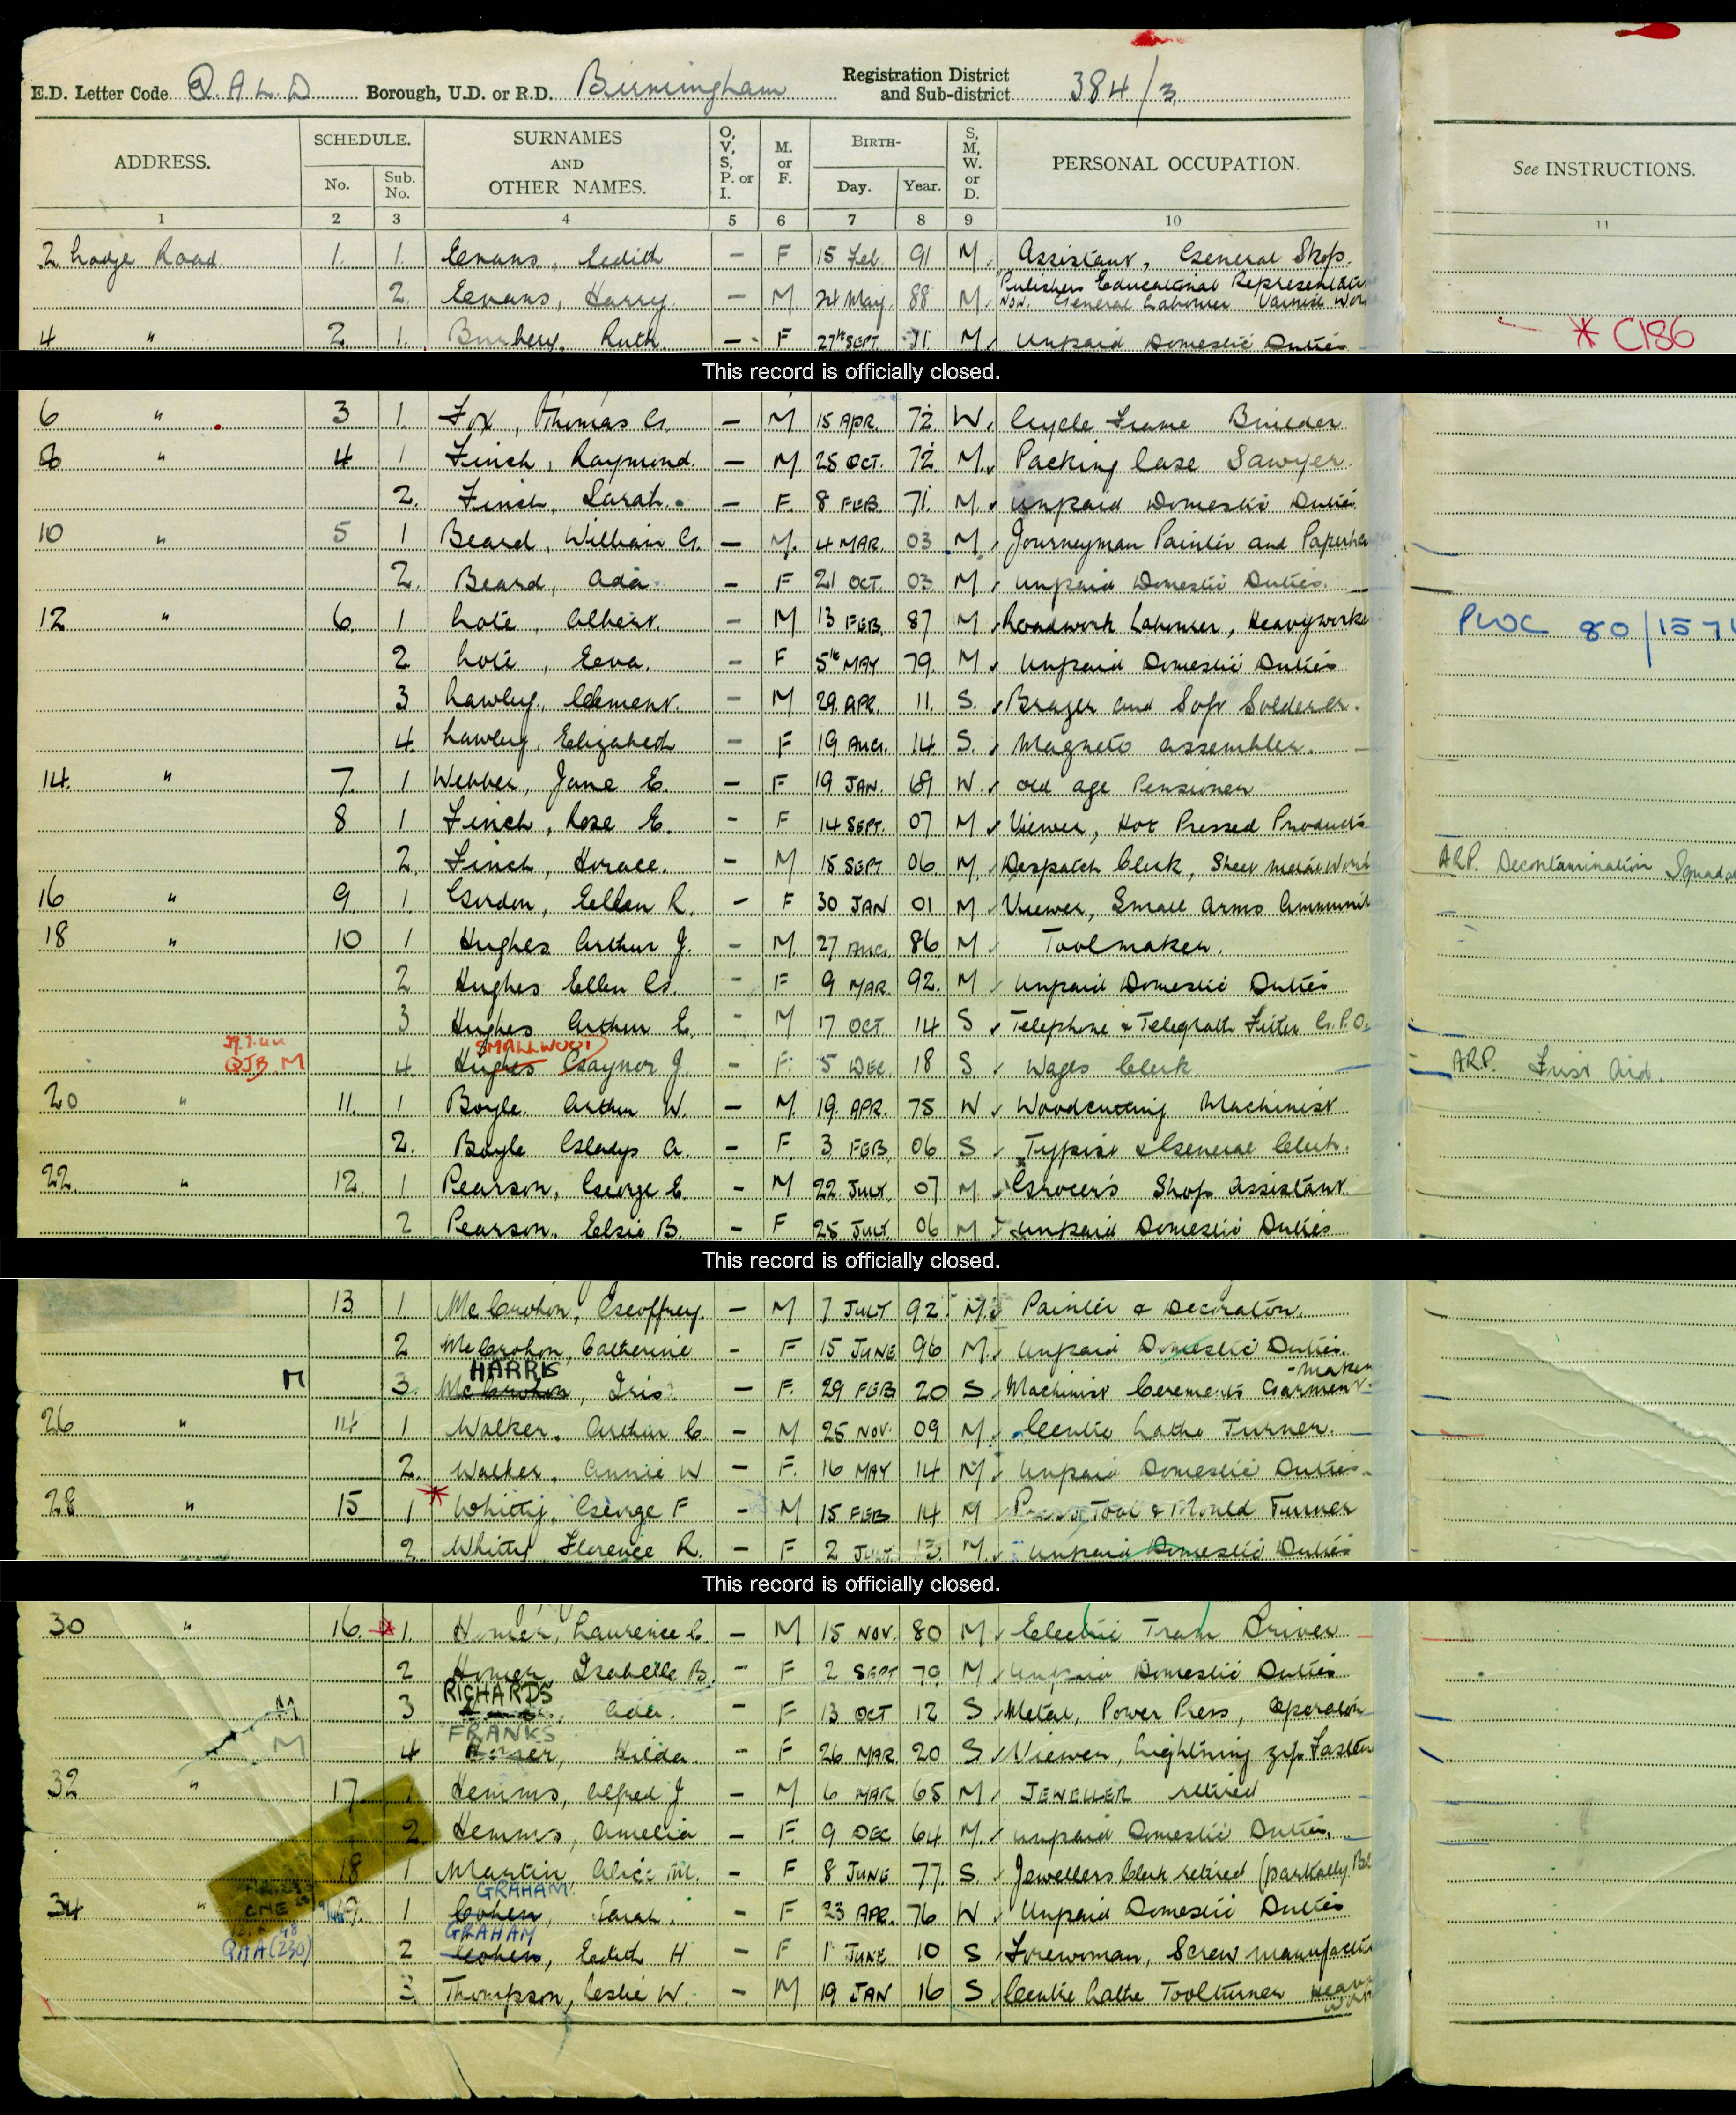 E.D. Letter Code Q.A.L.D Borough, U.D. or R.D. Birmingham Registration District and Sub-district 384/3
ADDRESS. SCHEDULE. No. Sub. No. SURNAMES AND OTHER NAMES. O, V, S, P. or I. M. or F. BIRTH- Day. Year. S, M, W. or D. PERSONAL OCCUPATION. See INSTRUCTIONS.
1 2 3 4 5 6 7 8 9 10 11
2 Lodge Road 1. 1. Evans, Edith – F 15 Feb. 91 M. Assistant, General Shop.
2. Evans, Harry. – M 24 May. 88 M. Publishers Educational Representative
Now. General Labourer Varnish Wor
4 " 2. 1. Ruth – F 27th SEPT 11 M. Unpaid Domestic Duties * C186
This record is officially closed.
6 " 3 1. Fox, Thomas G. – M 15 APR 72 W. Cycle Frame Builder
8 " 4 1 Finch, Raymond. – M. 25 OCT. 72 M. Packing Case Sawyer.
2. Finch, Sarah. – F. 8 FEB. 71. M. Unpaid Domestic Duties
10 " 5 1 Beard, William G. – M. 4 MAR. 03 M. Journeyman Painter and Paperha
2. Beard, Ada. – F 21 OCT 03 M Unpaid Domestic Duties.
12 " 6. 1 Lote, Albert. – M 13 FEB. 87 M Roadwork Labourer, Heavy worke PWOC 80/157
2 Lote, Eva. – F 5th MAY 79. M. Unpaid Domestic Duties
3 Lawley, Clement. – M 29 APR. 11. S. Brazer and Soft Solderer.
4. Lawley, Elizabeth – F 19 AUG. 14 S. Magneto assembler.
14. " 7. 1 Webber, Jane E. – F 19 JAN. 69 W. Old age Pensioner
8 1 Finch, Rose E. – F 14 SEPT. 07 M Viewer, Hot Pressed Products
2. Finch, Horace. – M 15 SEPT 06 M. Despatch Clerk, Sheet Metal Work ARP. Decontamination Squad
16 " 9. 1. Gordon, Ellen R. – F 30 JAN 01 M Viewer, Small Arms Ammunit
18 " 10 1 Hughes Arthur J. – M. 27 AUG. 86 M Toolmaker.
2 Hughes Ellen G. – F 9 MAR. 92. M Unpaid Domestic Duties
3 Hughes Arthur E. – M 17 OCT 14 S Telephone & Telegraph Fitter G.P.O.
29.7.44 SMALLWOOD
QJB M 4. Hughes Gaynor J. – F. 5 DEC. 18 S. Wages Clerk ARP. First Aid.
20 " 11. 1 Boyle. Arthur W. – M. 19. APR. 75 W Woodcutting Machinist
2. Boyle Gladys A. – F. 3 FEB. 06 S. Typist & General Clerk.
22. " 12. 1 Pearson, George E. – M 22 JULY. 07 M Grocer's Shop assistant
2 Pearson, Elsie B. – F 25 JULY. 06 M Unpaid Domestic Duties
This record is officially closed.
13 1. McCrohon, Geoffrey. – M 7 JULY 92. M. Painter & Decorator.
2 McCrohon, Catherine – F 15 JUNE 96 M. Unpaid Domestic Duties.
HARRIS -maker
M 3. McCrohon, Iris. – F. 29 FEB 20 S Machinist Cerements Garment
26 " 14 1 Walker. Arthur C. – M 25 NOV. 09 M. Centre Lathe Turner.
2. Walker, Annie W – F. 16 MAY 14 M Unpaid Domestic Duties.
28 " 15 * 1 Whitty, George F – M 15 FEB 14 M Tool & Mould Turner
2. Whitty Florence R. – F 2 JULY 13. M. Unpaid Domestic Duties
This record is officially closed.
30 " 16. * 1. Homer, Laurence C. – M 15 NOV. 80 M. Electric Tram Driver
2 Homer, Isabelle B. – F 2 SEPT 79 M. Unpaid Domestic Duties
RICHARDS
M 3 Ada. – F 13 OCT 12 S Metal, Power Press, Operator
FRANKS
M 4 Homer, Hilda. – F 26 MAR. 20 S Viewer, Lightning zip Fasten
32 " 17. 1 Hemms, Alfred J – M 6 MAR 65 M. JEWELLER retired
2 Hemms, Amelia – F. 9 DEC 64 M. Unpaid Domestic Duties.
18 1 Martin, Alice M. – F 8 JUNE 77. S. Jewellers Clerk retired (partially Bl
GRAHAM.
34 " CME 19. 1 Cohen, Sarah. – F 23 APR. 76 W Unpaid Domestic Duties
GRAHAM
QAA(230) 2 Cohen, Edith H – F 1 JUNE 10 S Forewoman, Screw manufactu
3. Thompson, Leslie W. – M 19 JAN 16 S. Centre Lathe Toolturner Heavy